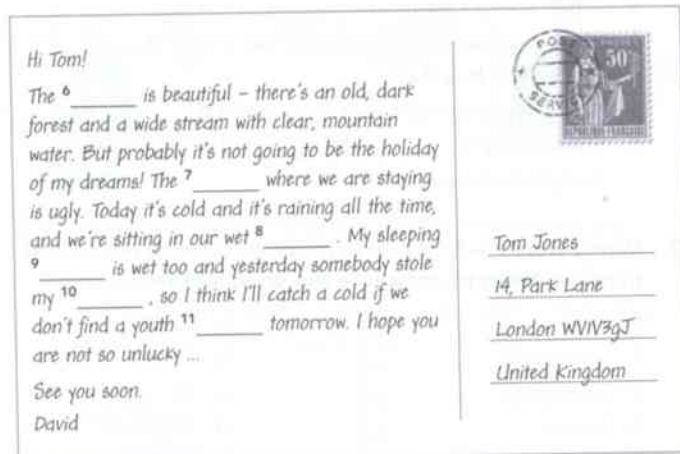 Hi Tom!
The 6______ is beautiful – there's an old, dark
forest and a wide stream with clear, mountain
water. But probably it's not going to be the holiday
of my dreams! The 7______ where we are staying
is ugly. Today it's cold and it's raining all the time,
and we're sitting in our wet 8______ . My sleeping
9______ is wet too and yesterday somebody stole
my 10______ , so I think I'll catch a cold if we
don't find a youth 11______ tomorrow. I hope you
are not so unlucky ...
See you soon.
David
POST
SERVICE
50
REPUBLIQUE FRANÇAISE
Tom Jones
14, Park Lane
London WV1V3gJ
United Kingdom